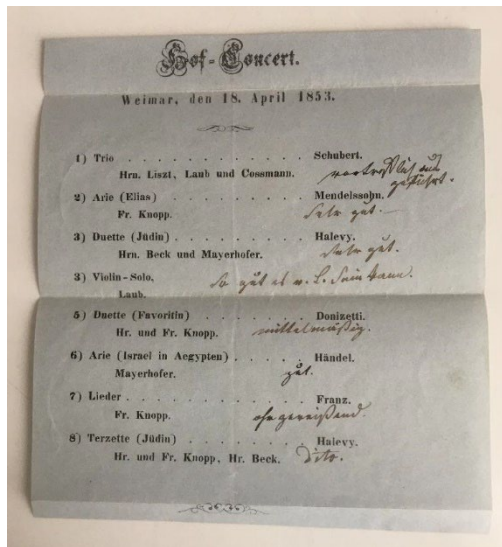 Hof-Concert.
Weimar, den 18. April 1853.
1) Trio . . . . . . . . . . . . . Schubert.
Hrn. Liszt, Laub und Cossmann. vortrefflich aus
geführt.
2) Arie (Elias) . . . . . . . . . . Mendelssohn.
Fr. Knopp. Sehr gut.
3) Duette (Jüdin) . . . . . . . . . Halevy.
Hrn. Beck und Mayerhofer. Sehr gut.
3) Violin-Solo, so gut es v. L. sein kann.
Laub.
5) Duette (Favoritin) . . . . . . . Donizetti.
Hr. und Fr. Knopp. mittelmäßig.
6) Arie (Israel in Aegypten) . . . . . Händel.
Mayerhofer. gut.
7) Lieder . . . . . . . . . . . . . Franz.
Fr. Knopp. ohrzerreißend.
8) Terzette (Jüdin) . . . . . . . . Halevy.
Hr. und Fr. Knopp, Hr. Beck. Dito.